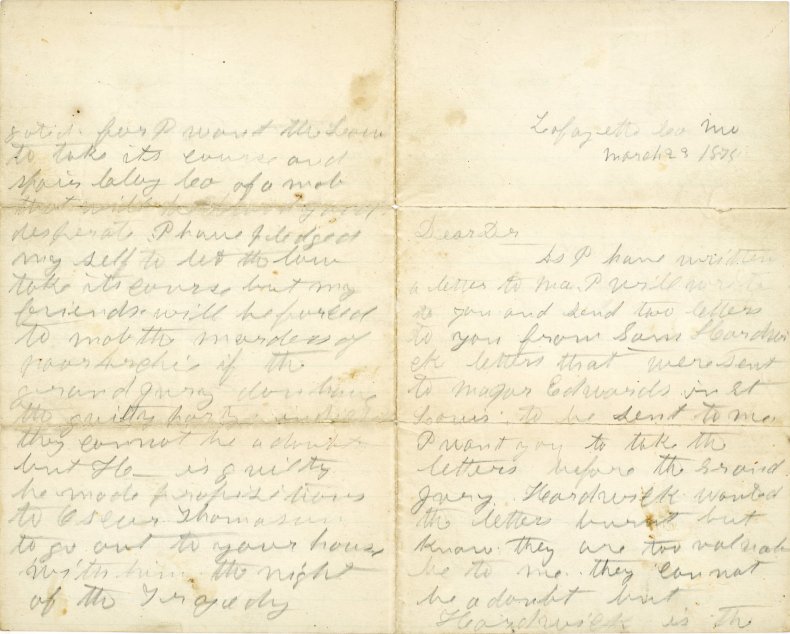 Lafayette Co Mo
March 23 1875
Dear Dr
As I have written
a letter to ma. I will write
to you and send two letters
to you from Sam Hardwi
ck letters that were sent
to Major Edwards in St
Louis. to be sent to me
I want you to take the
letters before the Grand
Jury. Hardwick wanted
the letters burnt but
know they are too valuab
le to me. they cannot
be a doubt but
Hardwick is the
for I want the Law
to take its course and
Clay Co of a mob
that will
desperate. I have pledged
my self to let the law
take its course but my
friends will be forced
to mob the murders of
poor Archie if the
grand jury dont
the guilty partys
they cannot be a doubt
but H— is guilty
he made propositions
to Oscur Thomason
to go out to your house
with him the night
of the Tragedy